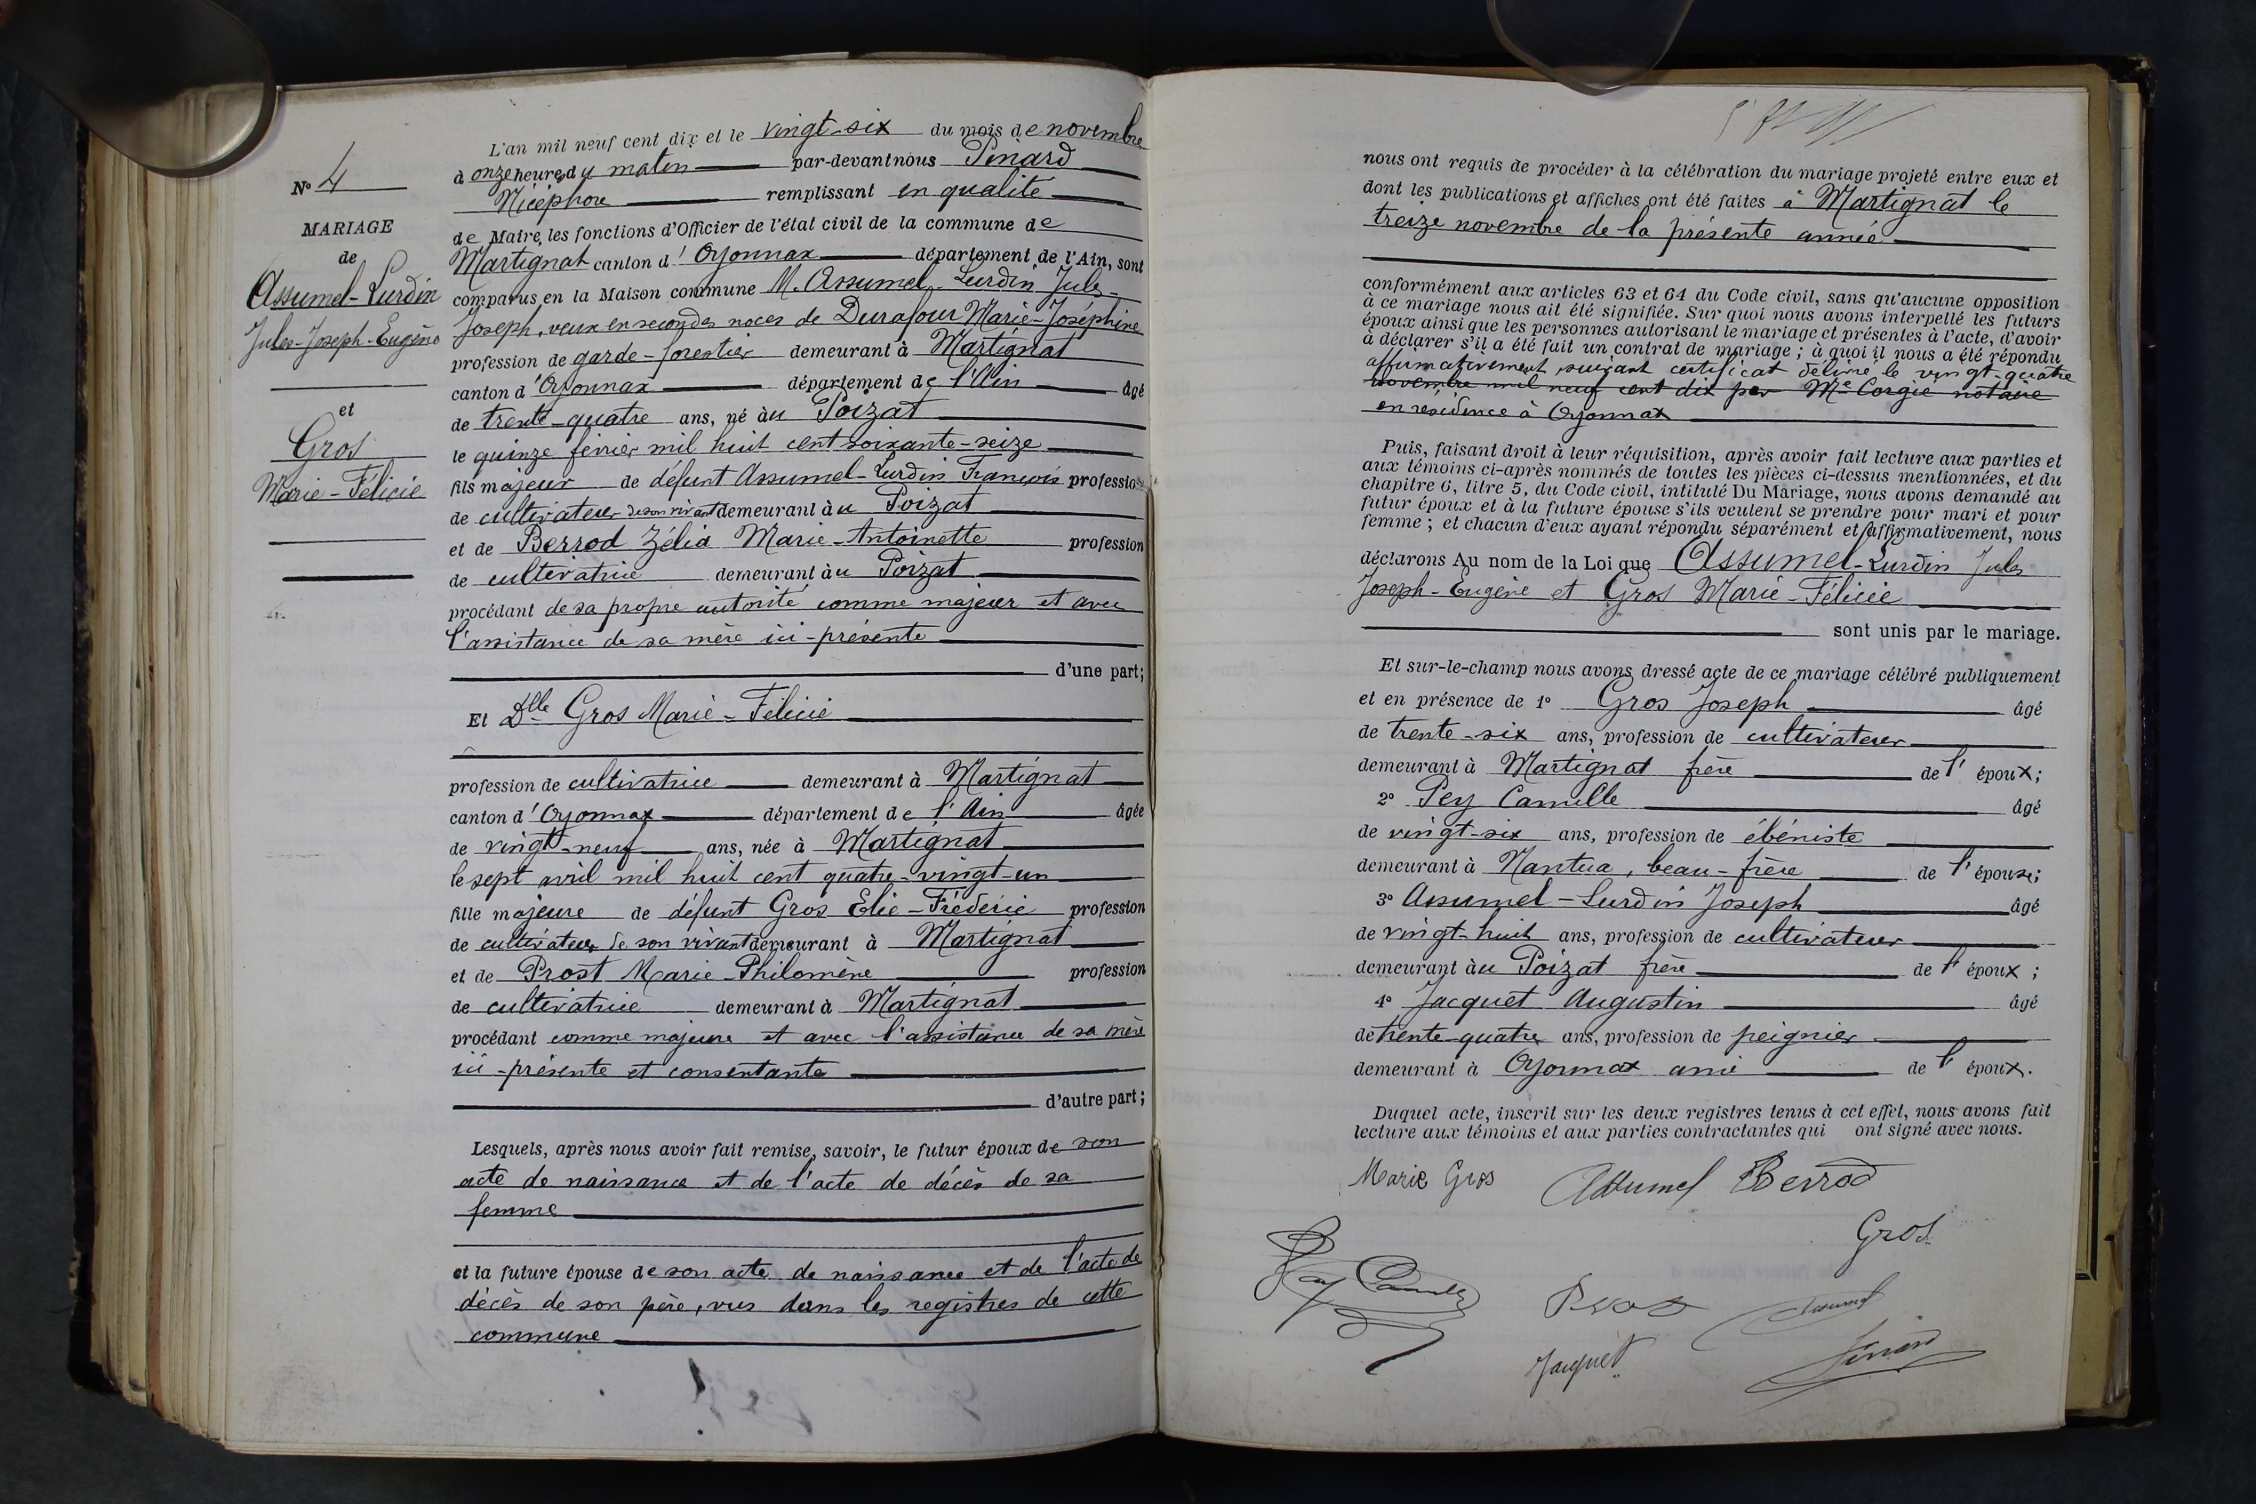 N° 4
MARIAGE
de
Assumel-Lurdin
Jules-Joseph-Eugène
et
Gros
Marie-Félicie
L'an mil neuf cent dix et le vingt-six du mois de novembre
à onze heures du matin par-devant nous Pinard
Nicéphore remplissant en qualité
de Maire, les fonctions d'Officier de l'état civil de la commune de
Martignat canton d'Oyonnax département de l'Ain, sont
comparus en la Maison commune M. Assumel-Lurdin Jules-
Joseph, veux en secondes noces de Durafour Marie-Joséphine
profession de garde-forestier demeurant à Martignat
canton d'Oyonnax département de l'Ain âgé
de trente-quatre ans, né au Poizat
le quinze février mil huit cent soixante-seize
fils majeur de défunt Assumel-Lurdin François profession
de cultivateur de son vivant demeurant au Poizat
et de Berrod Zélia Marie-Antoinette profession
de cultivatrice demeurant au Poizat
procédant de sa propre autorité comme majeur et avec
l'assistance de sa mère ici-présente
d'une part;
Et Dlle Gros Marie-Félicie
profession de cultivatrice demeurant à Martignat
canton d'Oyonnax département de l'Ain âgée
de vingt-neuf ans, née à Martignat
le sept avril mil huit cent quatre-vingt-un
fille majeure de défunt Gros Elie-Fréderic profession
de cultivateur de son vivant demeurant à Martignat
et de Prost Marie-Philomène profession
de cultivatrice demeurant à Martignat
procédant comme majeure et avec l'assistance de sa mère
ici-présente et consentante
d'autre part;
Lesquels, après nous avoir fait remise, savoir, le futur époux de son
acte de naissance et de l'acte de décès de sa
femme
et la future épouse de son acte de naissance et de l'acte de
décès de son père, vus dans les registres de cette
commune
nous ont requis de procéder à la célébration du mariage projeté entre eux et
dont les publications et affiches ont été faites à Martignat le
treize novembre de la présente année
conformément aux articles 63 et 64 du Code civil, sans qu'aucune opposition
à ce mariage nous ait été signifiée. Sur quoi nous avons interpellé les futurs
époux ainsi que les personnes autorisant le mariage et présentes à l'acte, d'avoir
à déclarer s'il a été fait un contrat de mariage; à quoi il nous a été répondu
affirmativement suivant certificat délivré le vingt-quatre
novembre mil neuf cent dix par Me Corgié notaire
en résidence à Oyonnax
Puis, faisant droit à leur réquisition, après avoir fait lecture aux parties et
aux témoins ci-après nommés de toutes les pièces ci-dessus mentionnées, et du
chapitre 6, titre 5, du Code civil, intitulé Du Mariage, nous avons demandé au
futur époux et à la future épouse s'ils veulent se prendre pour mari et pour
femme; et chacun d'eux ayant répondu séparément et affirmativement, nous
déclarons Au nom de la Loi que Assumel-Lurdin Jules
Joseph-Eugène et Gros Marie-Félicie
sont unis par le mariage.
Et sur-le-champ nous avons dressé acte de ce mariage célébré publiquement
et en présence de 1° Gros Joseph âgé
de trente-six ans, profession de cultivateur
demeurant à Martignat frère de l'époux;
2° Pey Camille âgé
de vingt-six ans, profession de ébéniste
demeurant à Nantua, beau-frère de l'épouse;
3° Assumel-Lurdin Joseph âgé
de vingt-huit ans, profession de cultivateur
demeurant au Poizat frère de l'époux;
4° Jacquet Augustin âgé
de trente-quatre ans, profession de peignier
demeurant à Oyonnax ami de l'époux.
Duquel acte, inscrit sur les deux registres tenus à cet effet, nous avons fait
lecture aux témoins et aux parties contractantes qui ont signé avec nous.
Marie Gros Assumel Berrod
Gros
Pey Camille Prost Assumel
Jacquet Pinard